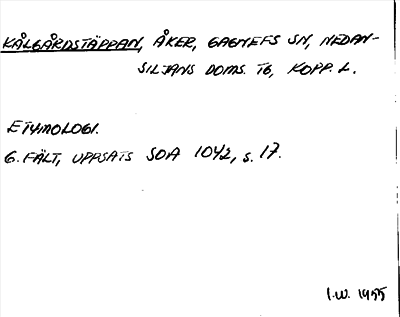 KÅLGÅRDSTÄPPAN, ÅKER, GAGNEFS SN, NEDAN-
SILJANS DOMS. TG, KOPP. L.
ETYMOLOGI.
G. FÄLT, UPPSATS SOA 1042, s. 17.
I.W. 1955